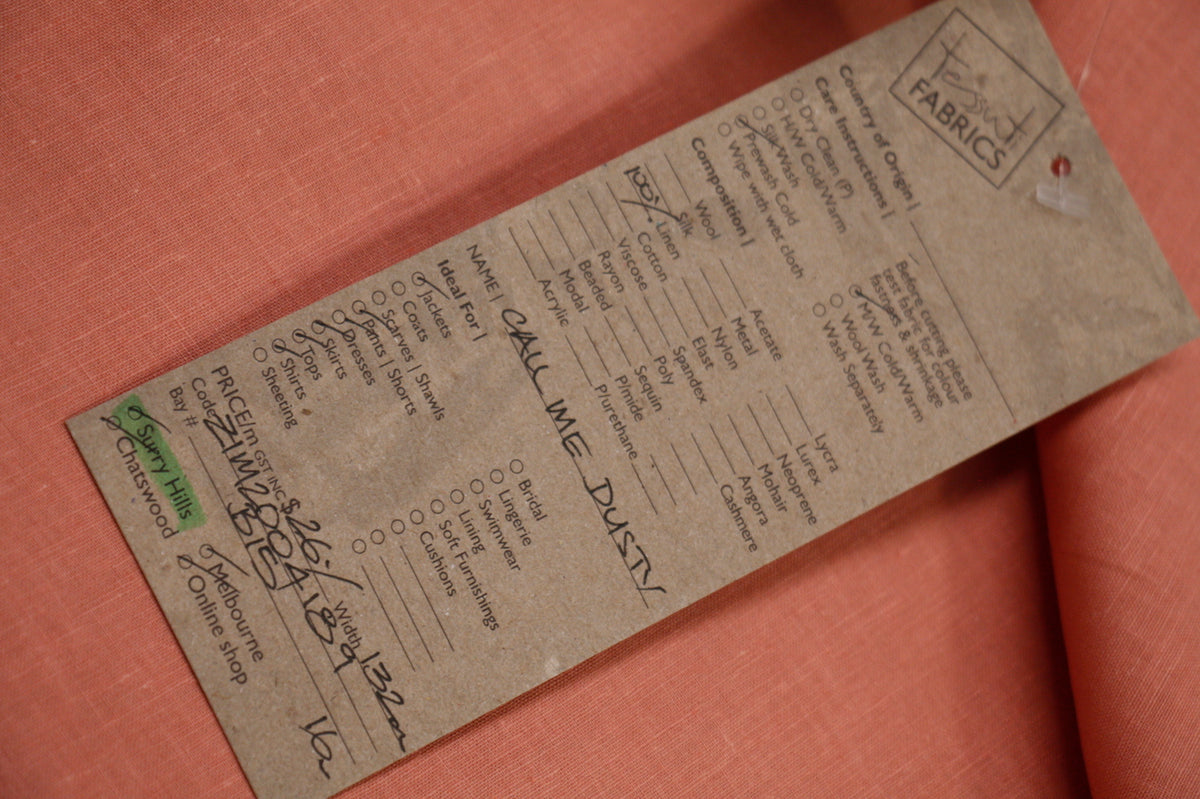 tessuti
FABRICS
Country of Origin |
Care Instructions |
Before cutting please
test fabric for colour
fastness & shrinkage
Dry Clean (P)
H/W Cold/Warm
Silk Wash
Prewash Cold
Wipe with wet cloth
M/W Cold/Warm
Wool Wash
Wash Separately
Composition |
Wool
Silk
100% Linen
Cotton
Viscose
Rayon
Beaded
Modal
Acrylic
Acetate
Metal
Nylon
Elast
Spandex
Poly
Sequin
P/mide
P/urethane
Lycra
Lurex
Neoprene
Mohair
Angora
Cashmere
NAME | CALL ME DUSTY
Ideal For |
Jackets
Coats
Scarves | Shawls
Pants | Shorts
Dresses
Skirts
Tops
Shirts
Sheeting
Bridal
Lingerie
Swimwear
Lining
Soft Furnishings
Cushions
PRICE/m GST INC $26./ Width 132cm
Code
Bay #
Surry Hills
Chatswood
Melbourne
Online shop